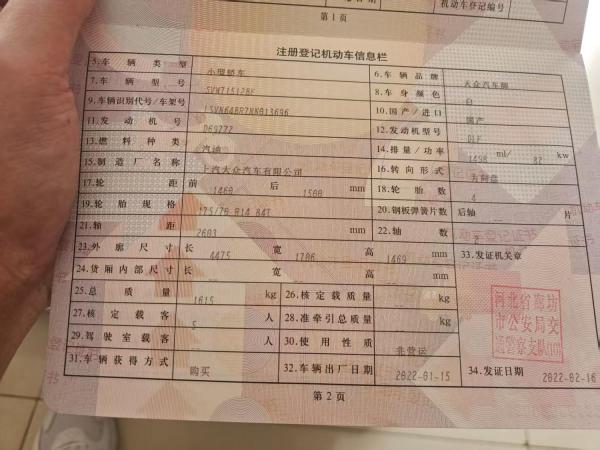 机动车登记编号
第1页
注册登记机动车信息栏
5.车辆类型 小型轿车 6.车辆品牌 大众汽车牌
7.车辆型号 8.车身颜色 白
9.车辆识别代号/车架号 10.国产/进口 国产
11.发动机号 D69772 12.发动机型号 DLF
13.燃料种类 汽油 14.排量/功率 1498 ml/ 82 kw
15.制造厂名称 上汽大众汽车有限公司 16.转向形式 方向盘
17.轮距 前 1460 后 1500 mm 18.轮胎数 4
19.轮胎规格 175/70 R14 84T 20.钢板弹簧片数 后轴 -- 片
21.轴距 2603 mm 22.轴数 2
23.外廓尺寸 长 4475 宽 1706 高 1469 mm 33.发证机关章
24.货厢内部尺寸 长 -- 宽 -- 高 -- mm
25.总质量 1615 kg 26.核定载质量 -- kg
27.核定载客 5 人 28.准牵引总质量 -- kg
29.驾驶室载客 -- 人 30.使用性质 非营运
31.车辆获得方式 购买 32.车辆出厂日期 2022-01-15 34.发证日期 2022-02-16
河北省廊坊
市公安局交
通警察支队(10)
第2页